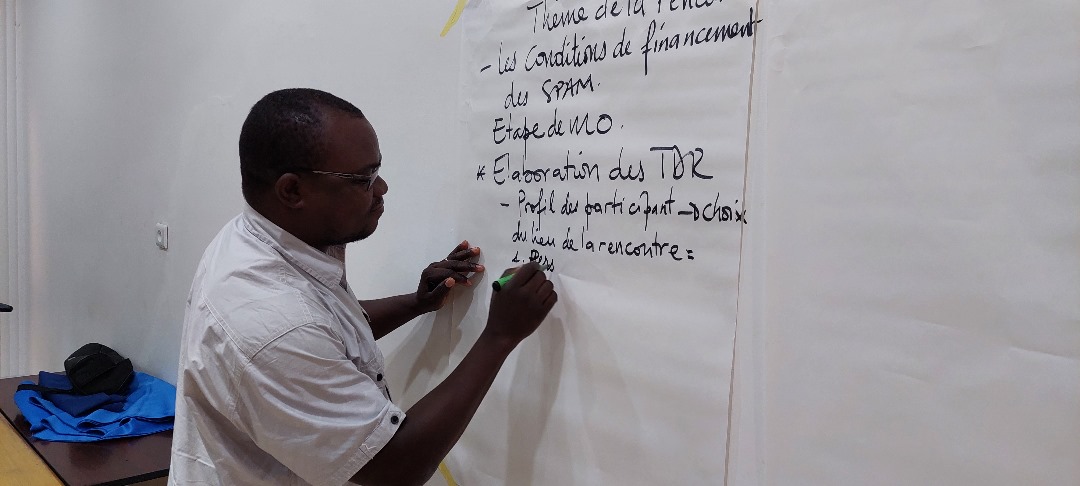 Thème de la rencon
- Les Conditions de financement
des SPAM.
Etape de MO.
* Elaboration des TDR
- Profil des participant → choix
du lieu de la rencontre =
1. Pers